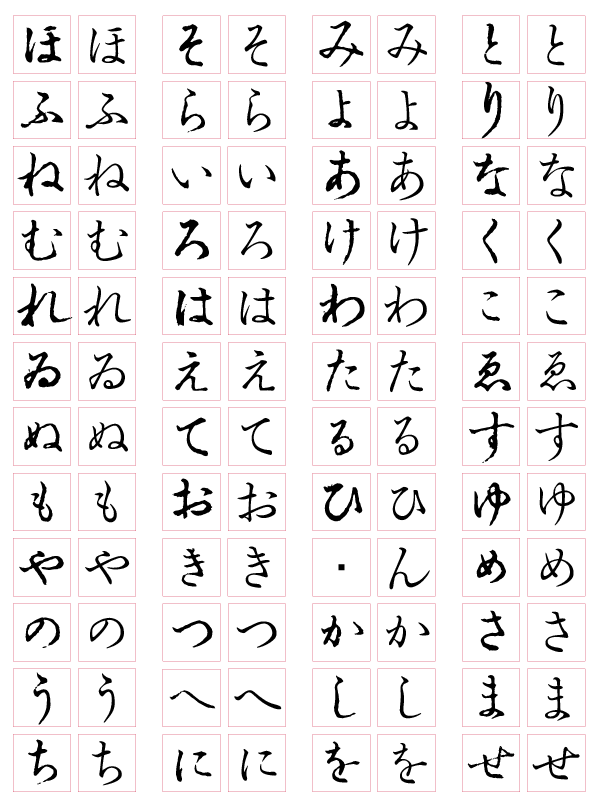 ほほ そそ みみ とと
ふふ らら よよ りり
ねね いい ああ なな
むむ ろろ けけ くく
れれ はは わわ ここ
ゐゐ ええ たた ゑゑ
ぬぬ てて るる すす
もも おお ひひ ゆゆ
やや きき ・ん めめ
のの つつ かか ささ
うう へへ しし まま
ちち にに をを せせ